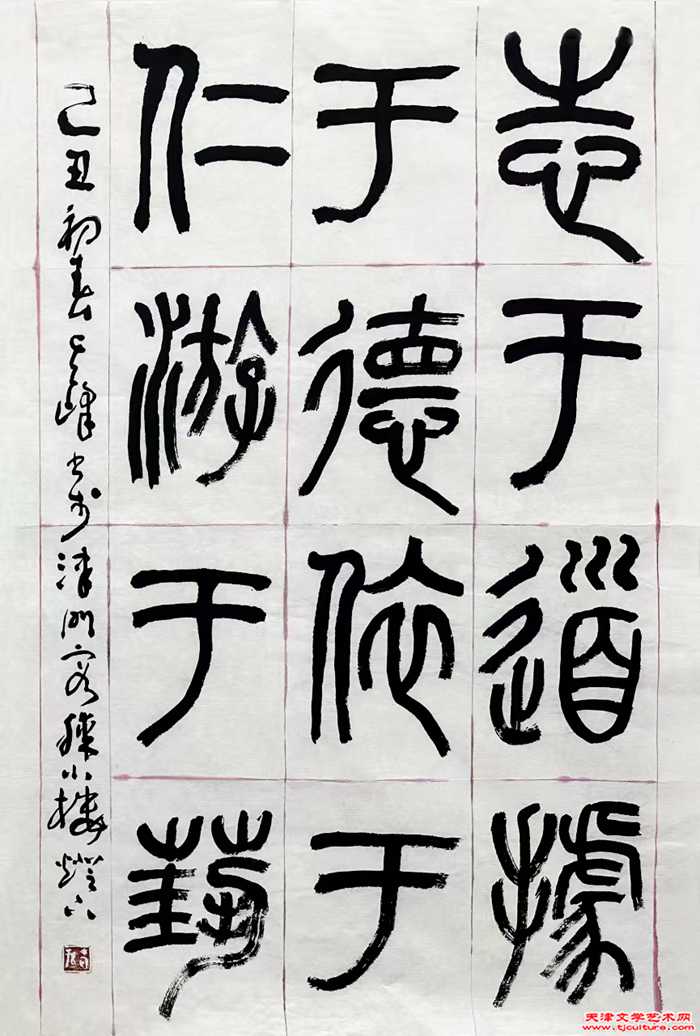 志于道據
于德依于
仁游于藝
己丑初春士峰书于津門容膝小樓燈下
天津文学艺术网
www.tjculture.com